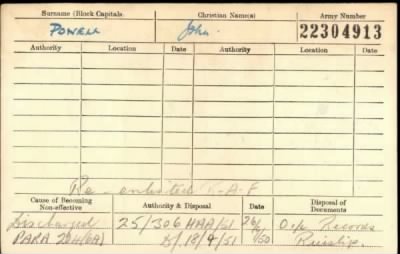 Surname (Block Capitals Christian Name(s) Army Number
POWELL John. 22304913
Authority Location Date Authority Location Date
Re-enlisted R-A-F
Cause of Becoming Non-effective Authority & Disposal Date Disposal of Documents
Discharged 25/306 HAA/51 O i/c Records
PARA 204(6A) 18/9/51 Ruislip.